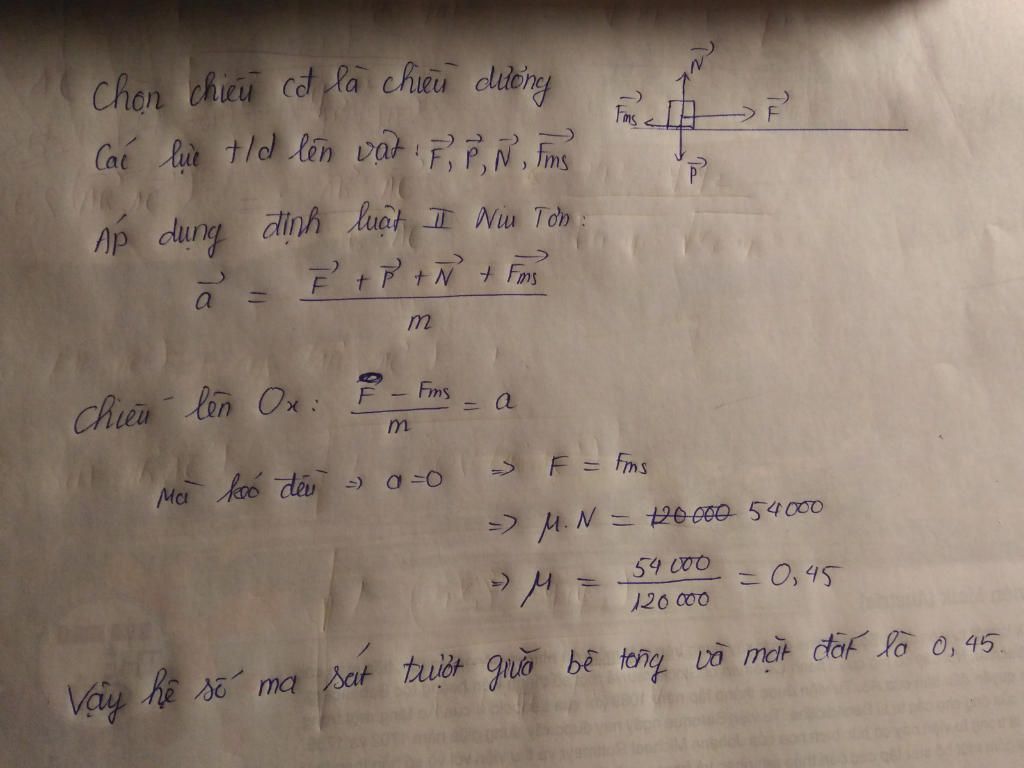 Chọn chiều cđ là chiều dương
Các lực t/d lên vật: F⃗, P⃗, N⃗, F⃗ms
N⃗
F⃗ms
F⃗
P⃗
Áp dụng định luật II Niu Tơn:
a⃗ = (F⃗ + P⃗ + N⃗ + F⃗ms) / m
Chiếu lên Ox: (F - Fms) / m = a
Mà đều => a = 0 => F = Fms
=> μ.N = 120 000 54 000
=> μ = 54 000 / 120 000 = 0,45
Vậy hệ số ma sát trượt giữa bê tông và mặt đất là 0,45.